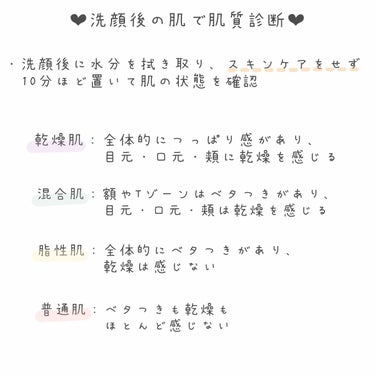 ❤洗顔後の肌で肌質診断❤
・洗顔後に水分を拭き取り、スキンケアをせず
10分ほど置いて肌の状態を確認
乾燥肌：全体的につっぱり感があり、
目元・口元・頬に乾燥を感じる
混合肌：額やTゾーンはベタつきがあり、
目元・口元・頬は乾燥を感じる
脂性肌：全体的にベタつきがあり、
乾燥は感じない
普通肌：ベタつきも乾燥も
ほとんど感じない